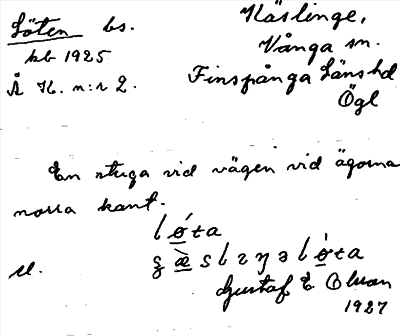 Löten bs.
kb 1925
Å K. n:r 2.
Käslinge,
Vånga sn.
Finspånga Länshd
Ögl
En stuga vid vägen vid ägorna
norra kant.
Gustaf E Olsson
1927